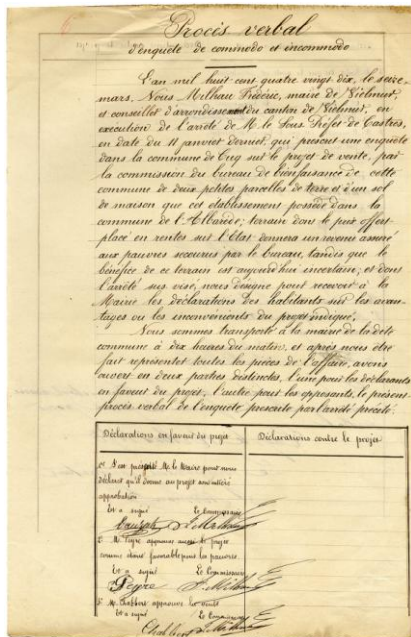 Procès verbal
d'enquête de commodo et incommodo
L'an mil huit cent quatre vingt dix, le seize
mars, Nous Milhau Frédéric, maire de Vielmur,
et conseiller d'arrondissement du canton de Vielmur, en
execution de l'arrêté de M. le Sous Préfet de Castres,
en date du 11 janvier dernier, qui prescrit une enquête
dans la commune de Cuq sur le projet de vente, par
la commission du bureau de bienfaisance de cette
commune de deux petites parcelles de terre et d'un sol
de maison que cet établissement possède dans la
commune de l'Albarède; terrain dont le prix offert
placé en rentes sur l'Etat donnera un revenu assuré
aux pauvres secourus par le bureau, tandis que le
bénéfice de ce terrain est aujourd'hui incertain; et dont
l'arrêté sus visé, nous désigne pour recevoir à la
Mairie les déclarations des habitants sur les avan-
tages ou les inconvénients du projet indiqué.
Nous sommes transporté à la mairie de la dite
commune à dix heures du matin, et après nous être
fait représenter toutes les pièces de l'affaire, avons
ouvert en deux parties distinctes, l'une pour les déclarants
en faveur du projet, l'autre pour les opposants, le présent
procès verbal de l'enquête prescrite par l'arrêté précité.
Déclarations en faveur du projet
Déclarations contre le projet
1º S'est présenté M. le Maire pour nous
déclarer qu'il donne au projet son entière
approbation
Et a signé Le Commissaire
F. Milhau
2º M. Peyre approuve aussi le projet
comme étant favorable pour les pauvres.
Et a signé Le Commissaire
Peyre F. Milhau
3º M. Chabbert approuve la vente
Et a signé Le Commissaire
Chabbert F. Milhau